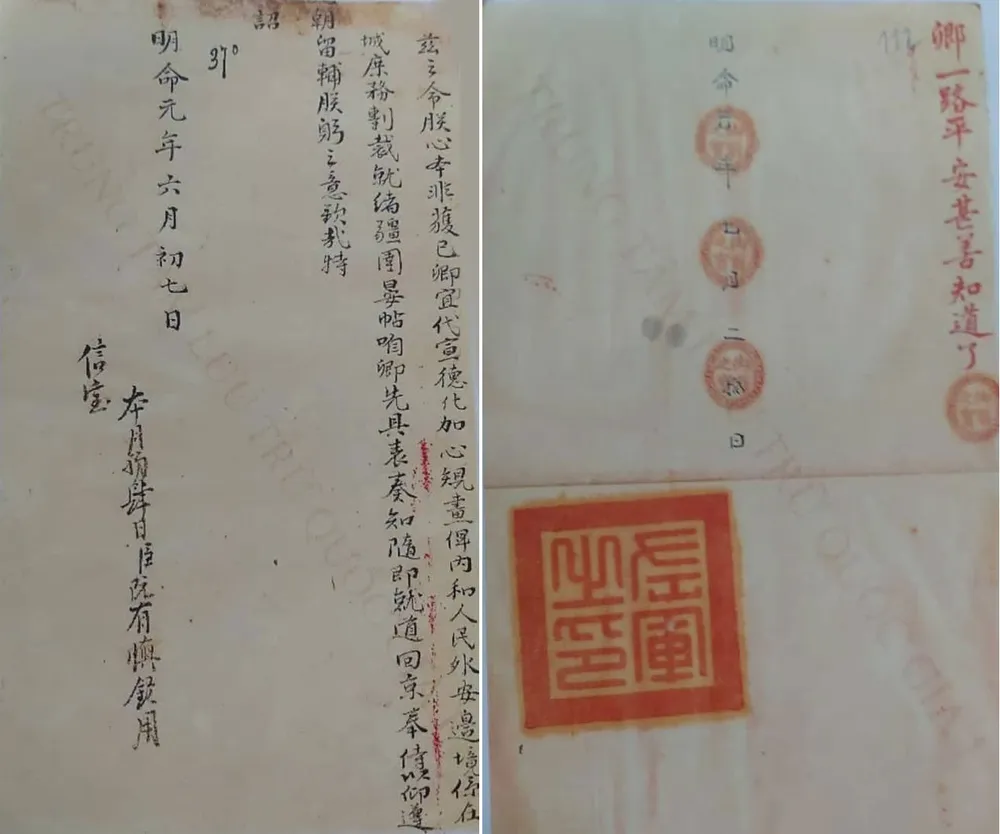 茲之令朕心本非獲已卿宜代宣德化加心規畫俾內和人民外安邊境係在
城庶務剸裁就緒疆圉晏帖咱卿先具表奏知隨即就道回京奉侍以仰遵
朝留輔朕躬之意欽哉特
詔
37°
明命元年六月初七日
本月拾肆日臣阮有欽用
信寶
卿一路平安甚善知道了
明命元年七月二拾日
左軍之印